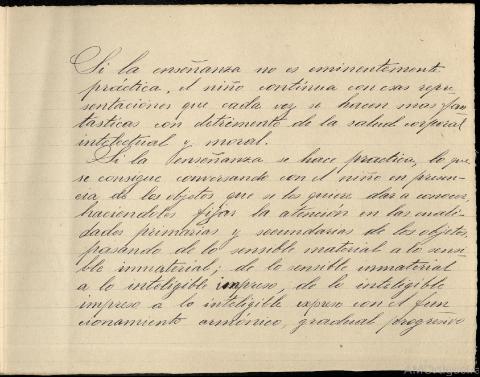 Si la enseñanza no es eminentemente
práctica, el niño continua con esas repre
sentaciones que cada vez se hacen mas fan
tasticas con detrimento de la salud corporal
intelectual y moral.
Si la enseñanza se hace practica, lo que
se consigue conversando con el niño en presen-
cia de los objetos que se les quiere dar a conocer,
haciendoles fijar la atencion en las cuali-
dades primarias y secundarias de los objetos,
pasando de lo sensible material a lo sensi
ble inmaterial; de lo sensible inmaterial
a lo inteligible impreso, de lo inteligible
impreso a lo inteligible expreso con el fun
cionamiento armónico, gradual progresivo